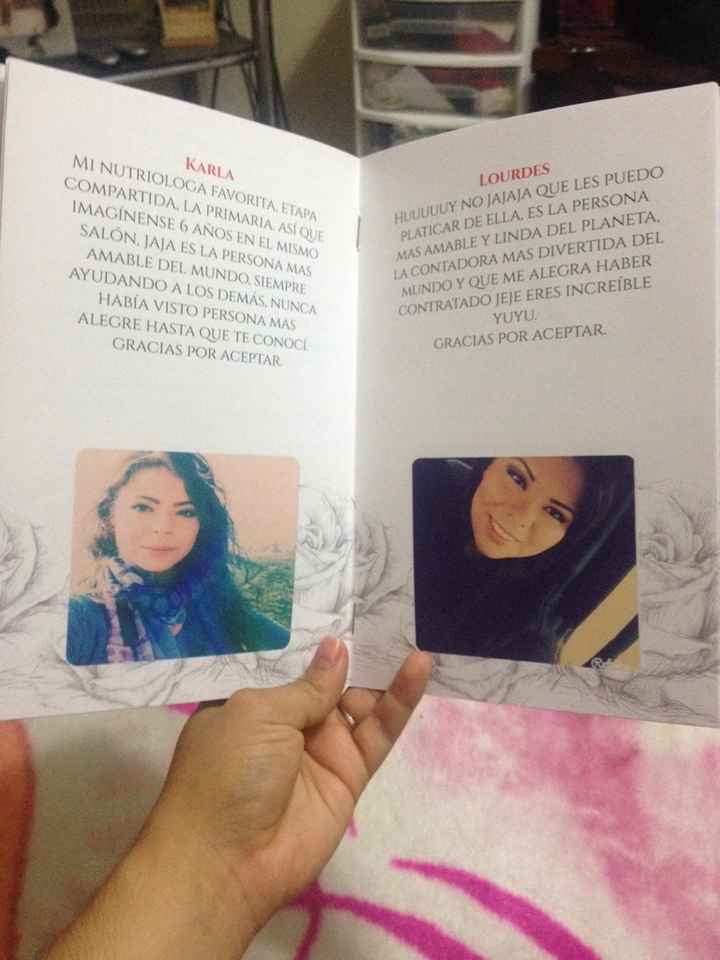 KARLA
MI NUTRIOLOGA FAVORITA, ETAPA
COMPARTIDA, LA PRIMARIA. ASÍ QUE
IMAGÍNENSE 6 AÑOS EN EL MISMO
SALÓN, JAJA ES LA PERSONA MAS
AMABLE DEL MUNDO, SIEMPRE
AYUDANDO A LOS DEMÁS, NUNCA
HABÍA VISTO PERSONA MAS
ALEGRE HASTA QUE TE CONOCÍ.
GRACIAS POR ACEPTAR.
LOURDES
HUUUUUY NO JAJAJA QUE LES PUEDO
PLATICAR DE ELLA, ES LA PERSONA
MAS AMABLE Y LINDA DEL PLANETA,
LA CONTADORA MAS DIVERTIDA DEL
MUNDO Y QUE ME ALEGRA HABER
CONTRATADO JEJE ERES INCREÍBLE
YUYU.
GRACIAS POR ACEPTAR.